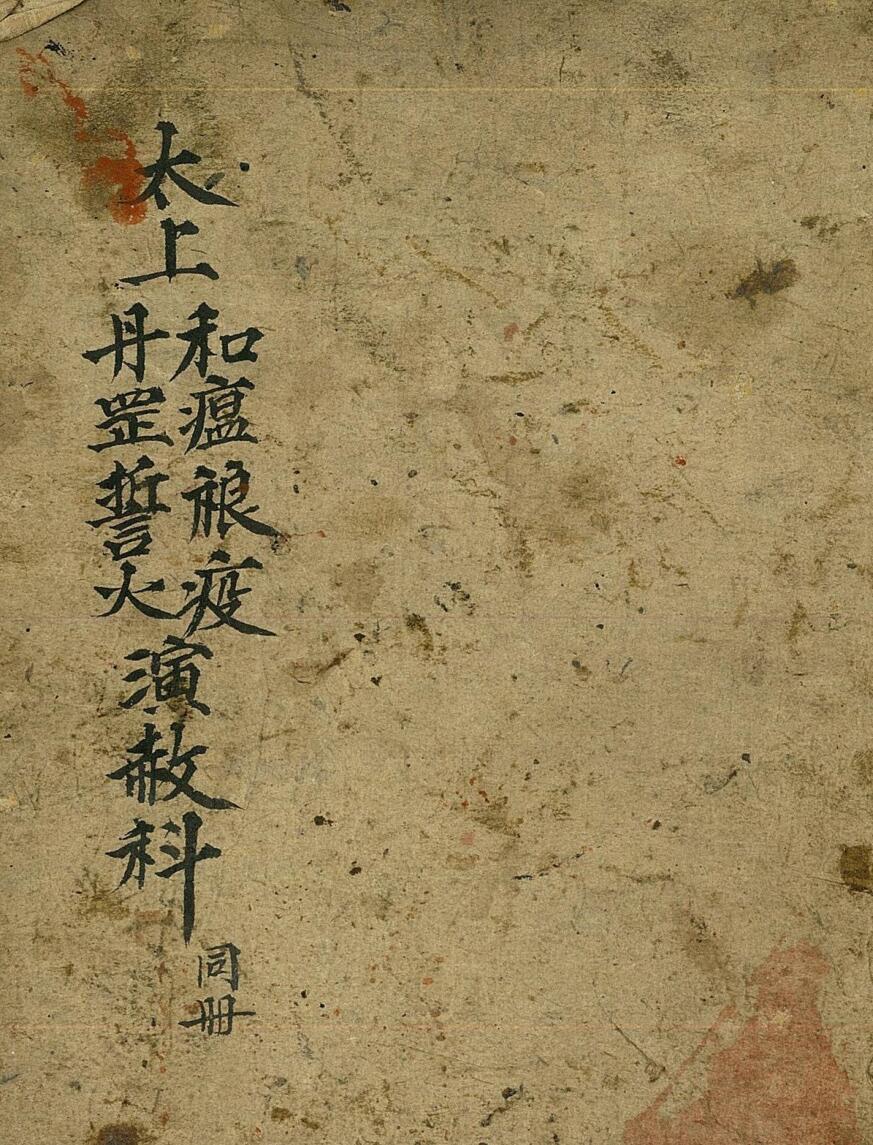 太上
和瘟疫
丹罡誓火
演赦科
同冊